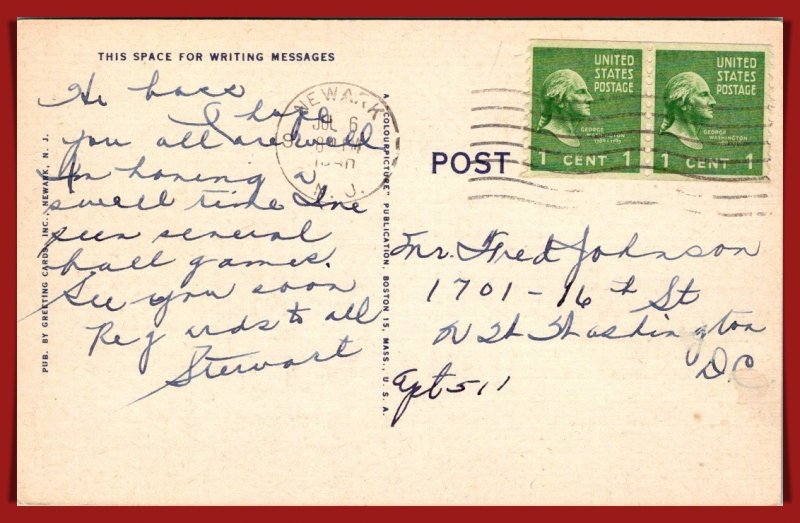 THIS SPACE FOR WRITING MESSAGES
I hope
you all are well
swell time Ive
seen several
ball games.
See you soon
Regards to all
Stewart
PUB. BY GREETING CARDS, INC., NEWARK, N. J.
A "COLOURPICTURE" PUBLICATION, BOSTON 15, MASS., U. S. A.
NEWARK
JUL 6
N. J.
POST
UNITED
STATES
POSTAGE
GEORGE
WASHINGTON
1 CENT 1
UNITED
STATES
POSTAGE
GEORGE
WASHINGTON
1 CENT 1
Mr. Fred Johnson
1701 - 16 th St
Washington
D.C
Apt 511